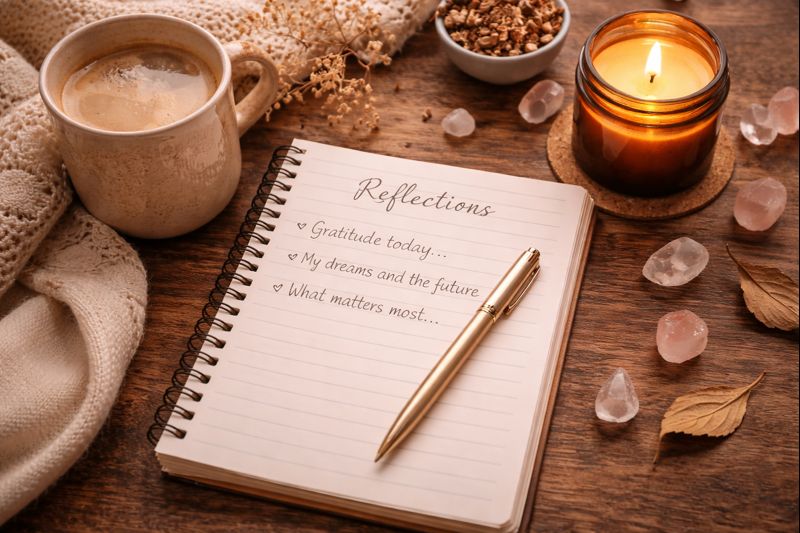 Reflections
♡ Gratitude today...
♡ My dreams and the future
♡ What matters most...